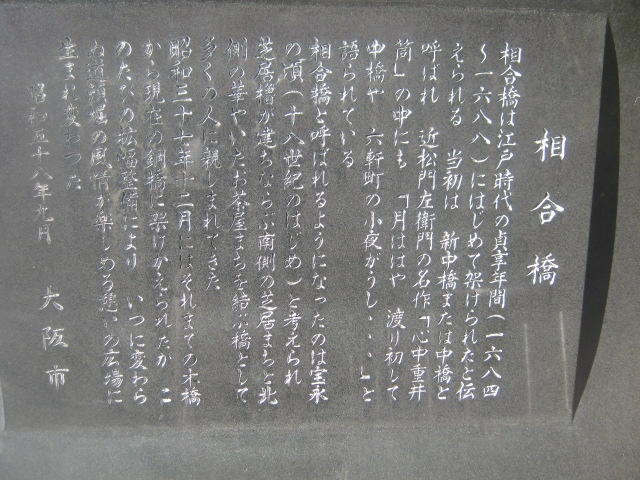 相合橋
相合橋は江戸時代の貞享年間(一六八四
〜一六八八)にはじめて架けられたと伝
えられる 当初は 新中橋または中橋と
呼ばれ 近松門左衛門の名作「心中重井
筒」の中にも 「月ははや 渡り初して
中橋や 六軒町の小夜がうし・・・」と
語られている
相合橋と呼ばれるようになったのは宝永
の頃(十八世紀のはじめ)と考えられ
芝居櫓が建ちならぶ南側の芝居まちと北
側の華やいだお茶屋まちを結ぶ橋として
多くの人に親しまれてきた
昭和三十七年十二月にはそれまでの木橋
から現在の鋼橋に架けかえられたが こ
のたびの拡幅整備により いつに変わら
ぬ道頓堀の風情が楽しめる憩いの広場に
生まれ変わった
昭和五十八年九月 大阪市